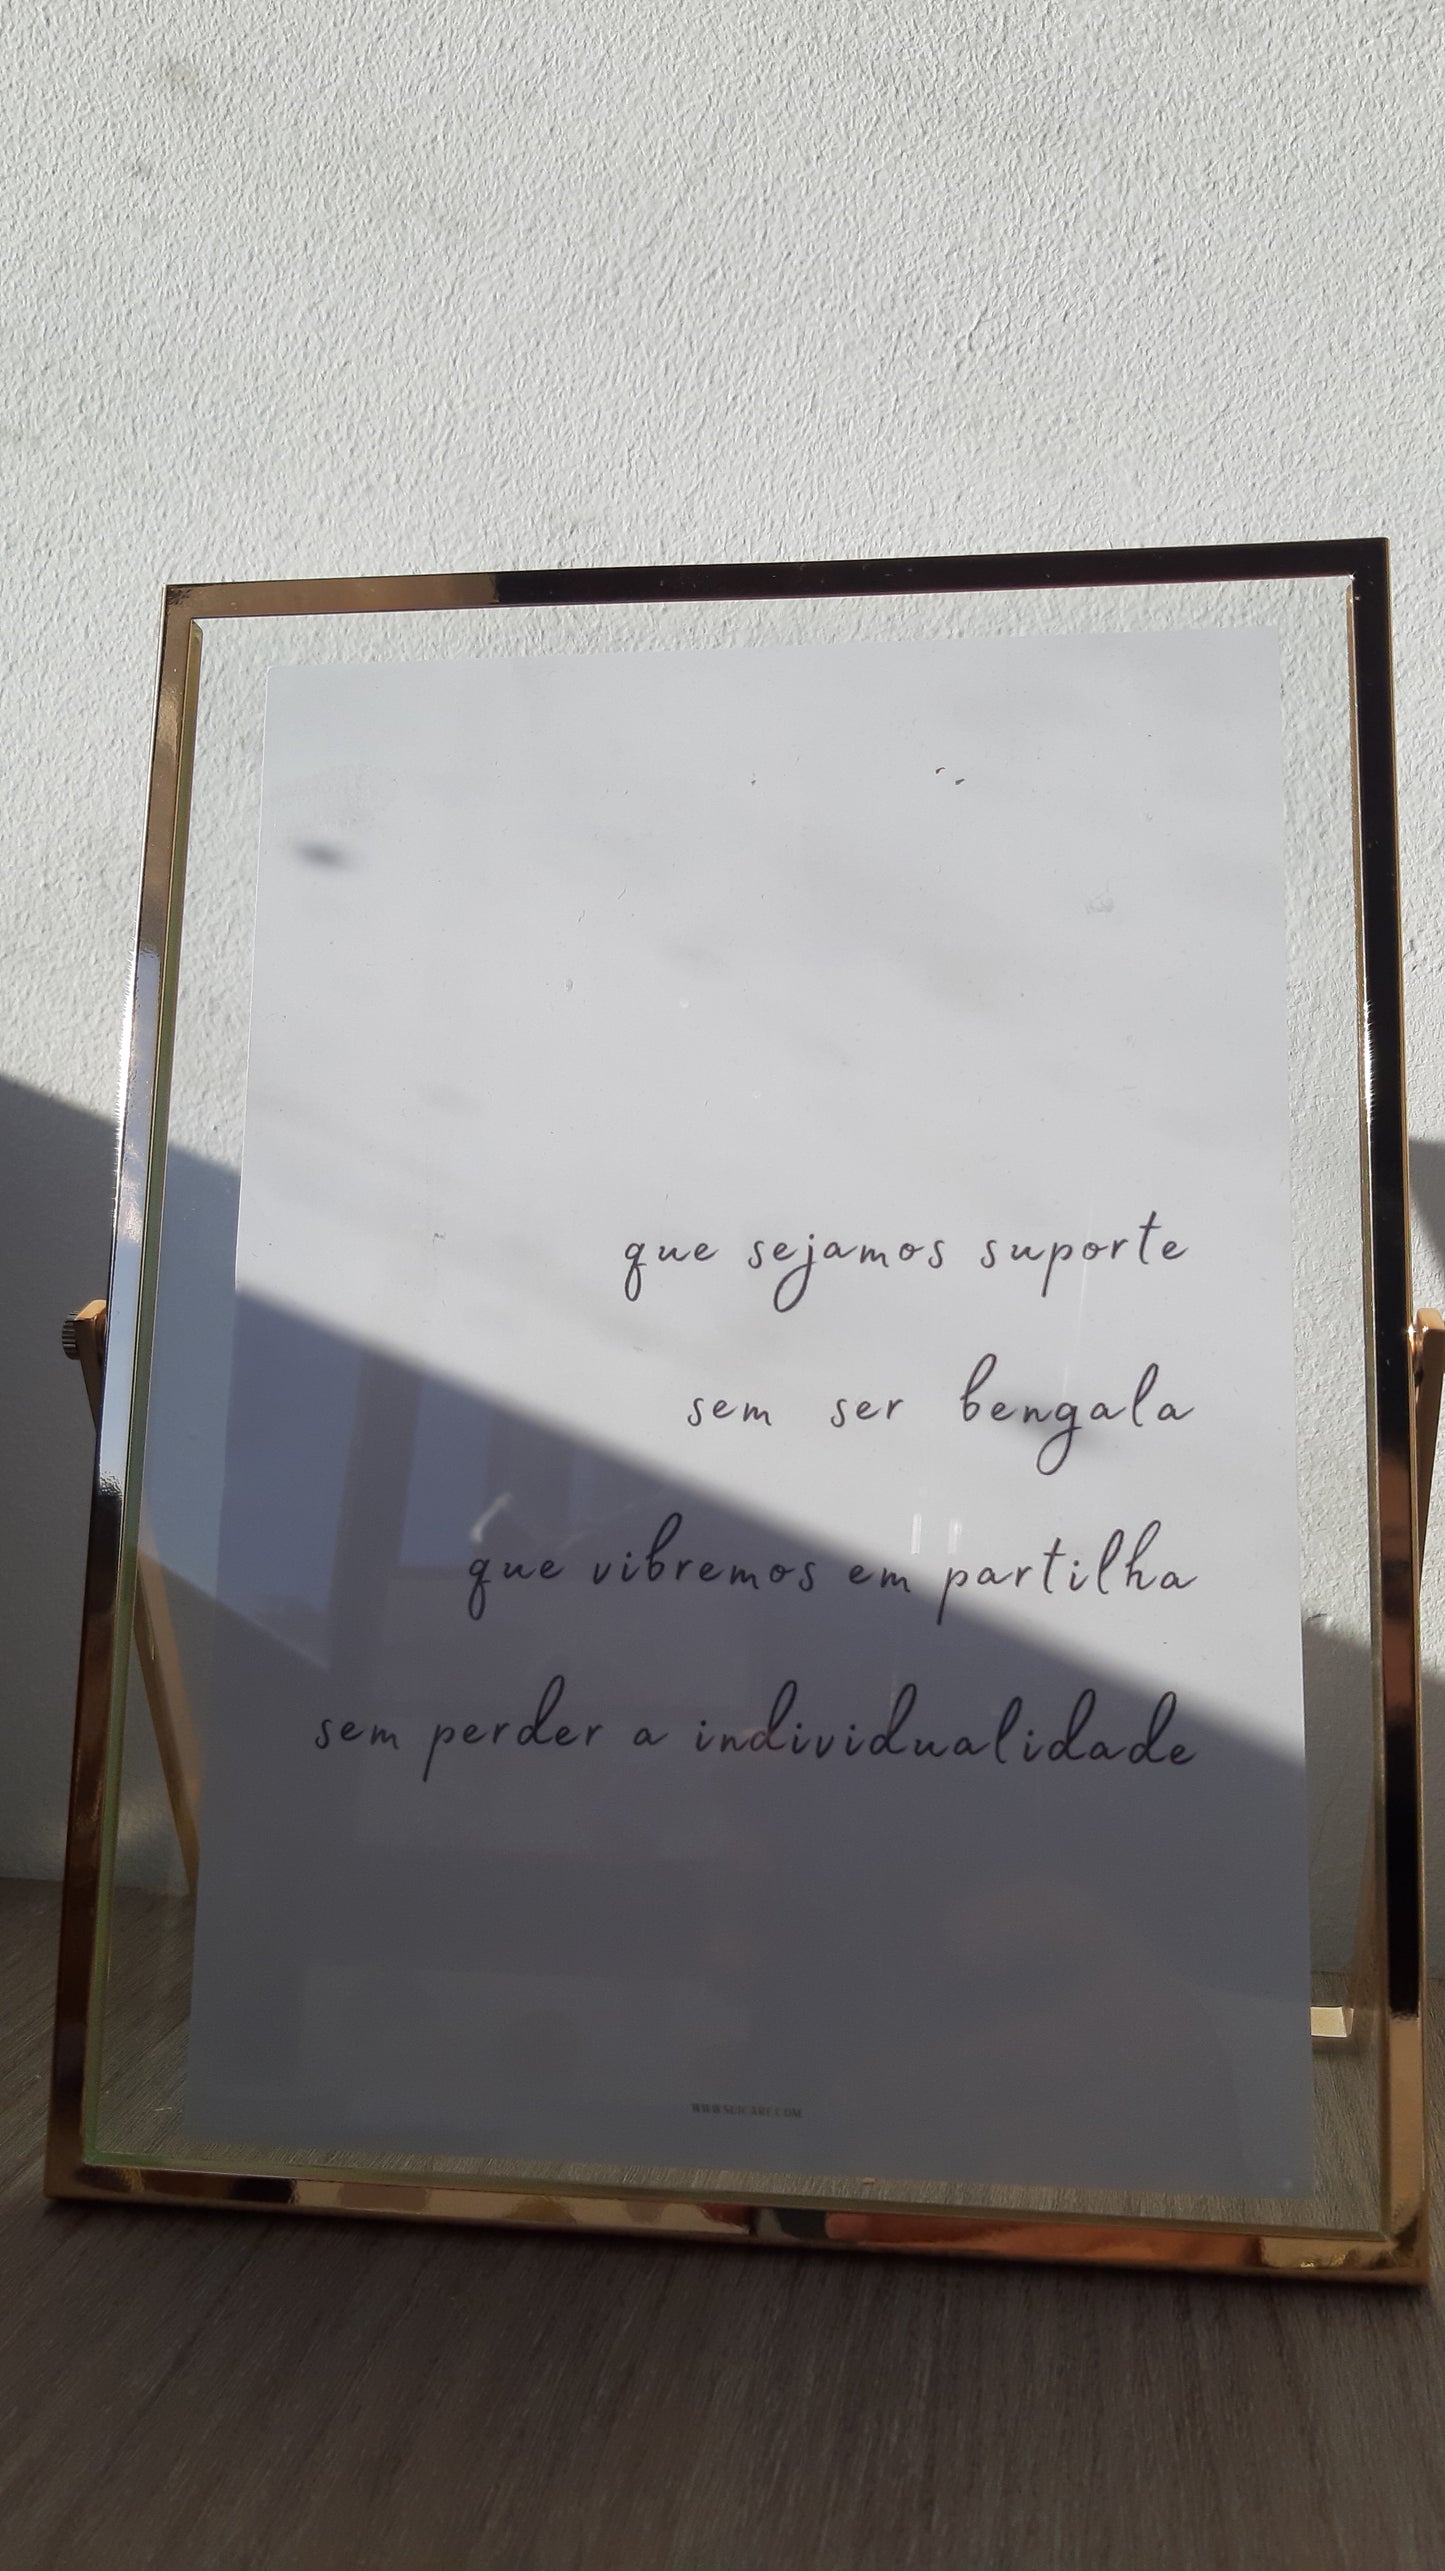 que sejamos suporte
sem ser bengala
que vibremos em partilha
sem perder a individualidade